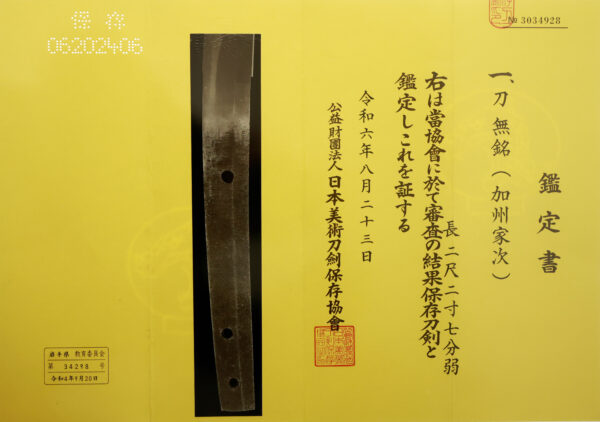 № 3034928
鑑定書
一、刀 無銘（加州家次）
長 二尺二寸七分弱
右は當協會に於て審査の結果保存刀剣と
鑑定しこれを証する
令和六年八月二十三日
公益財團法人 日本美術刀劍保存協會
保存
06202406
岩手県 教育委員会
第 34298 号
令和4年9月20日